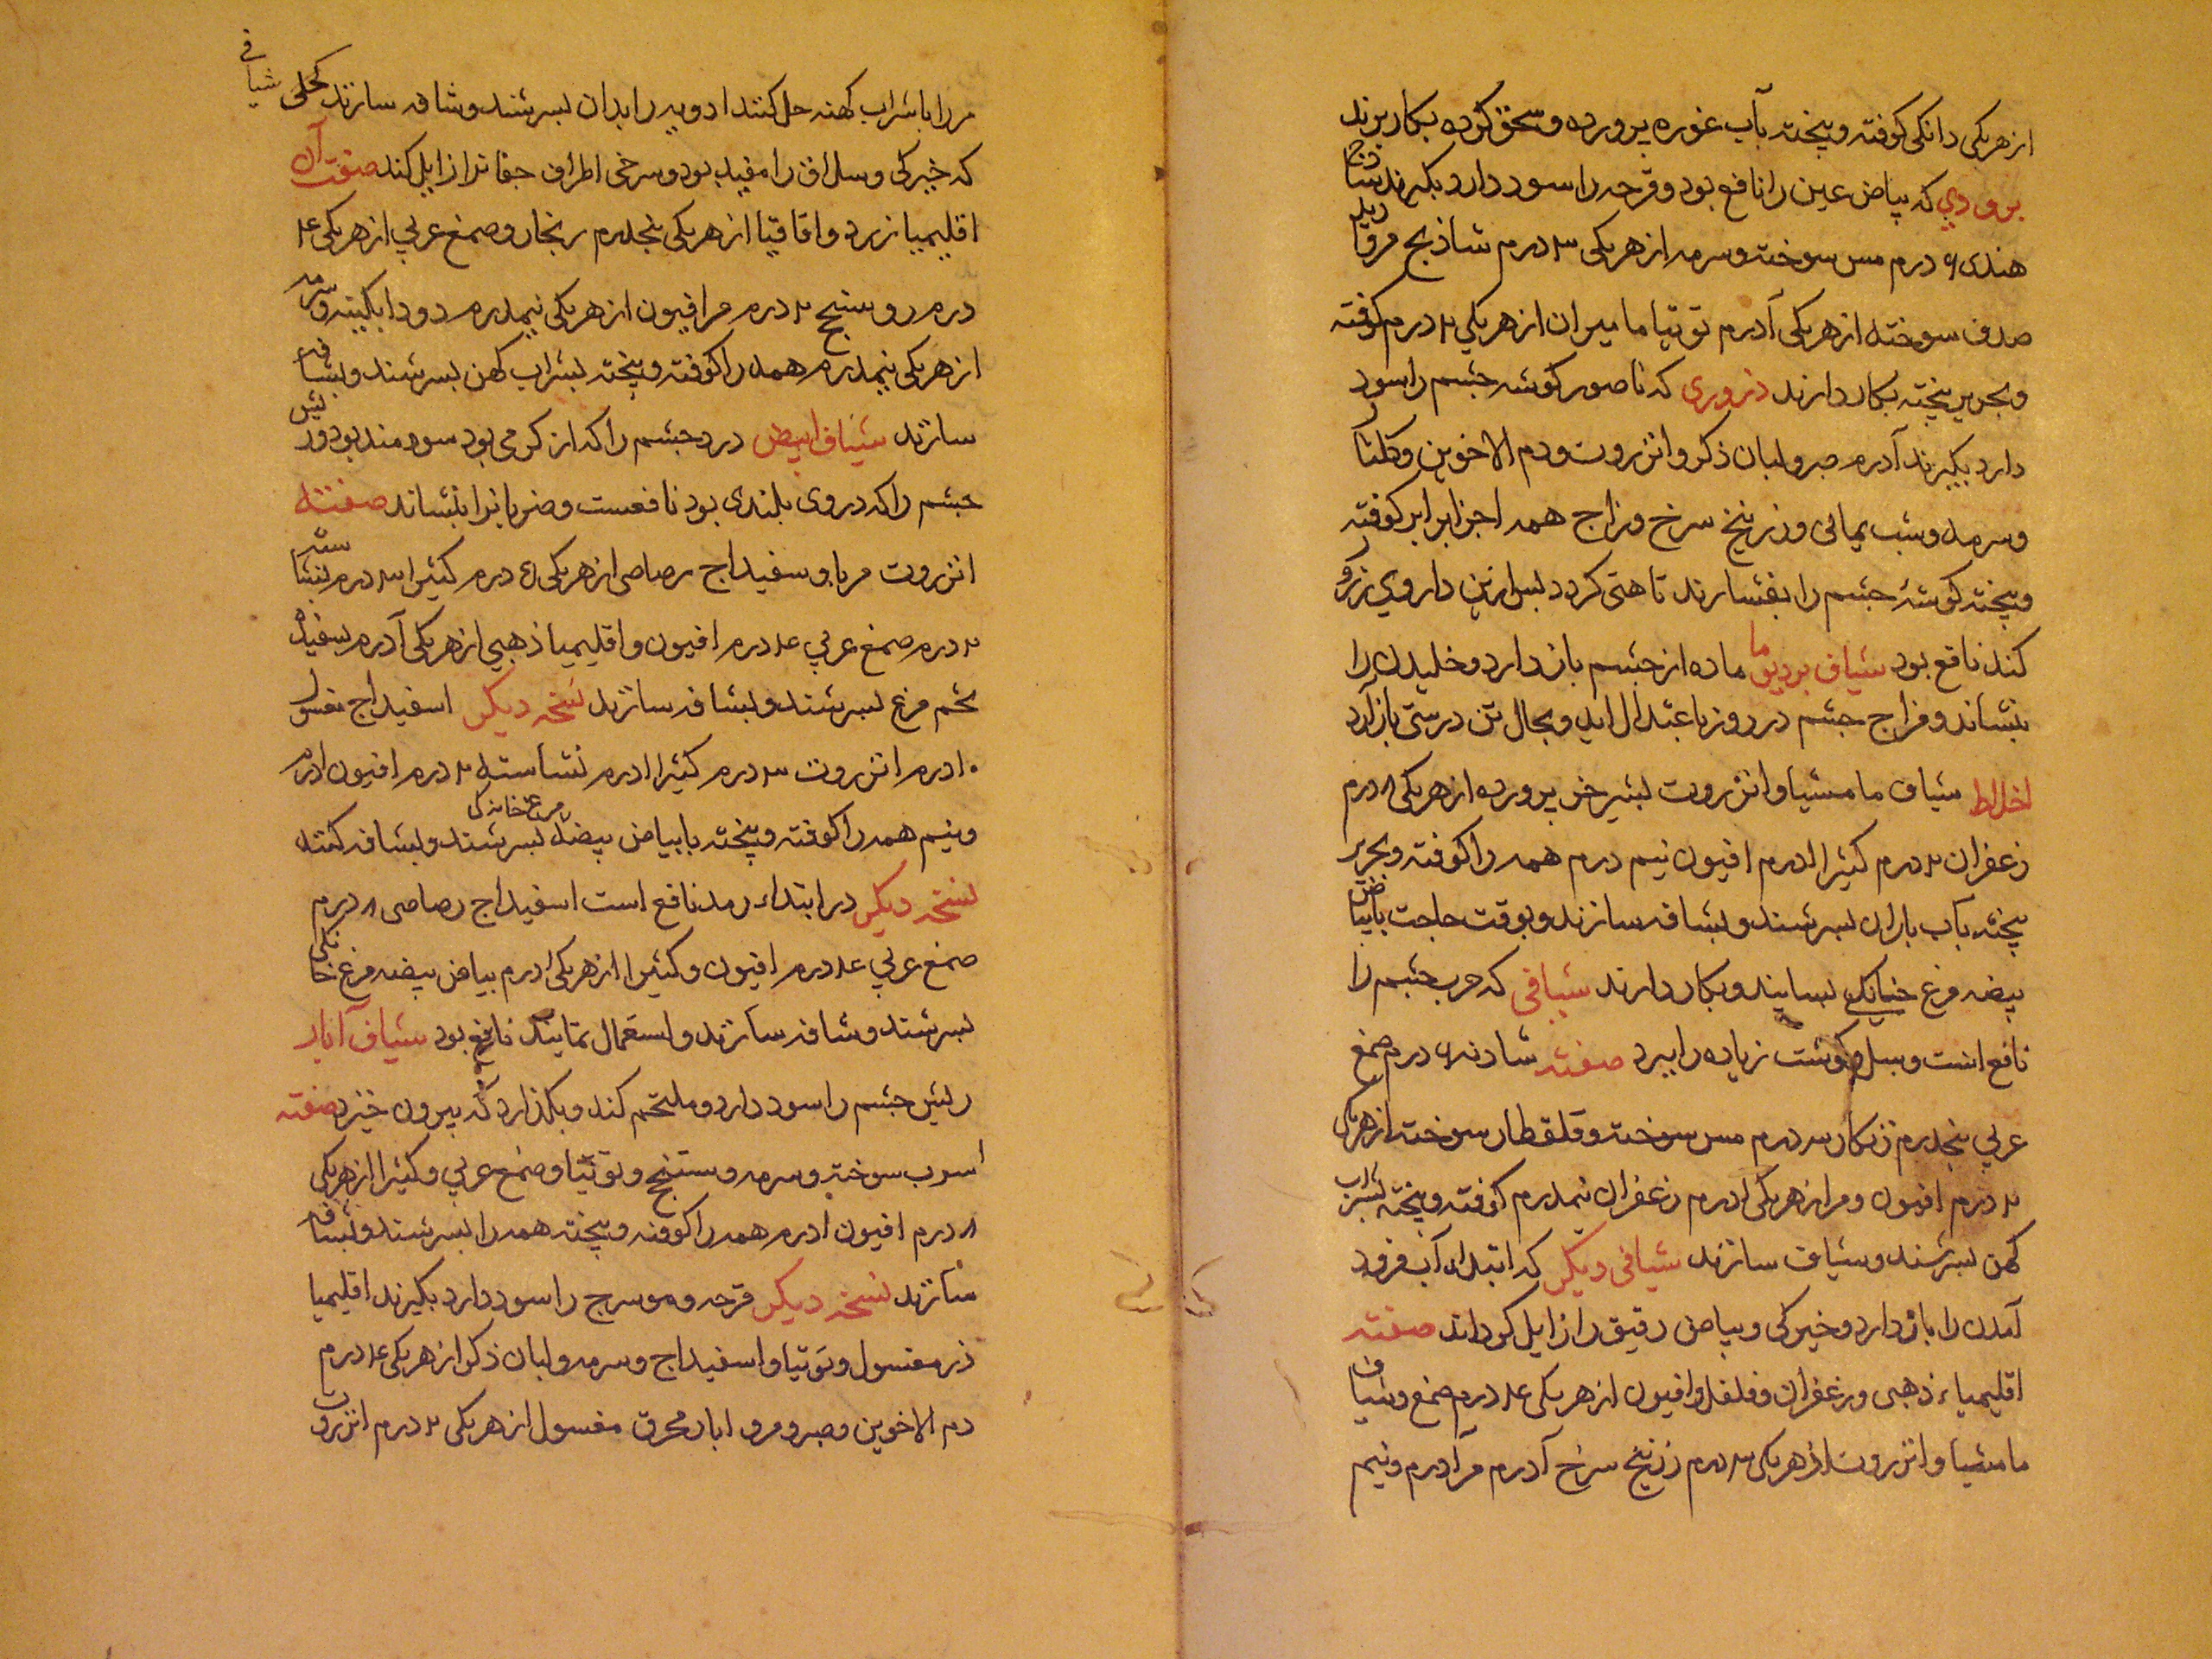 از هر یکی دانکی کوفته و پیخته بآب غوره پرورده و سحق کرده بکار برند
برودی که بیاض عین را نافع بود و قرحه را سود دارد بکیرند ساذج
هندی ۶ درم مس سوخته و سرمه از هر یکی ۳ درم شاذنج مروارید
صدف سوخته از هر یکی آدرم توتیا مامیران از هر یکی ۲ درم کوفته
و بحریر پیخته بکار دارند ذروری که ناصور کوشه چشم را سود
دارد بکیرند آدرم صبر و لبان ذکر و انزروت و دم الاخوین و کلنار
و سرمه و شب یمانی و زرنیخ سرخ و زاج همه اجزا برابر کوفته
و پیخته کوشهٔ چشم را بفشارند تا هتی کردد پس ازین داروی زرو
کند نافع بود شیاف بردیوما ماده از چشم باز دارد و خلیدن را
بنشاند و مزاج چشم در روز باعتدال اید و بحال تن درستی باز آرد
اخلاط شیاف مامشیا و انزروت بشیر خر پرورده از هر یکی ۸ درم
زعفران ۲ درم کثیرا ادرم افیون نیم درم همه را کوفته و بحریر
پیخته بآب باران بسرشند و بشافه سازند و بوقت حاجت بابیاض
بیضه مرغ خانکی بسایند و بکار دارند شیافی که جرب چشم را
نافع است و سبل و کوشت زیاده را ببرد صفته شادنه ۶ درم صمغ
عربی پنجدرم زنکار ۳ درم مس سوخته و قلقطار سوخته از هر یکی
۲ درم افیون و مر از هر یکی ادرم زعفران نیمدرم کوفته و پیخته بشراب
کهن بسرشند و شیاف سازند شیافی دیکر که ابتداء آب فرود
آمدن را باز دارد و خیرکی و بیاض رقیق را زایل کرداند صفته
اقلیمیاء ذهبی و زعفران و فلفل و افیون از هر یکی ۴ درم صمغ و شیاف
مامشیا و انزروت از هر یکی ۳ درم زرنیخ سرخ آدرم مر آدرم و نیم
مر را با شراب کهنه حل کنند ادویه را بدان بسرشند و شافه سازند کحلی شیافی
که خیرکی و سلاق را مفید بود و سرخی اطراف جفانرا زایل کند صفت آن
اقلیمیا زرد و اقاقیا از هر یکی پنجدرم زنجار و صمغ عربی از هر یکی ۴
درم روسنج ۲ درم مر افیون از هر یکی نیمدرم دود ابکینه و سرمه
از هر یکی نیمدرم همه را کوفته و پیخته بشراب کهن بسرشند و بشافه
سازند شیاف ابیض درد چشم را که از کرمی بود سودمند بود و ریش
چشم را که در وی بلندی بود نافعست و ضربانرا بنشاند صفته
انزروت مربا و سفیداج رصاصی از هر یکی ۴ درم کثیرا ۳ درم نشاسته
۲ درم صمغ عربی ۴ درم افیون و اقلیمیا ذهبی از هر یکی آدرم بسفیده
تخم مرغ بسرشند و بشافه سازند نسخه دیکر اسفیداج مغسول
۱۰ درم انزروت ۳ درم کثیرا ادرم نشاسته ۲ درم افیون ادرم
و نیم همه را کوفته و پیخته با بیاض بیضه مرغ خانکی بسرشند و بشافه کنند
نسخه دیکر در ابتداء رمد نافع است اسفیداج رصاصی ۸ درم
صمغ عربی ۴ درم افیون و کثیرا از هر یکی ادرم بیاض بیضه مرغ خانکی
بسرشند و شافه سازند و استعمال نمایند نافع بود شیاف آبار
ریش چشم را سود دارد و ملتحم کند و بکذارد که بیرون خیزد صفته
اسرب سوخته و سرمه و ستنج و توتیا و صمغ عربی و کثیرا از هر یکی
۸ درم افیون ادرم همه را کوفته و پیخته همه را بسرشند و بشافه
سازند نسخه دیکر قرحه و موسرج را سود دارد بکیرند اقلیمیا
زر مغسول و توتیا و اسفیداج و سرمه و لبان ذکر از هر یکی ۴ درم
دم الاخوین و صبر و مر و ابار محرق مغسول از هر یکی ۲ درم انزروت